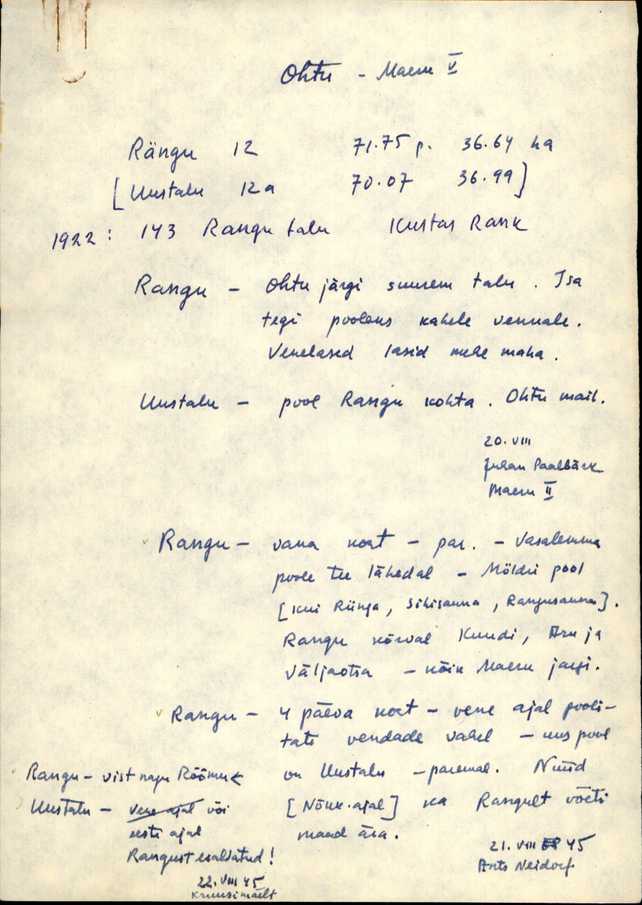 Ohtu - Maeru V
Rängu 12 71.75 p. 36.64 ha
[Uustalu 12a 70.07 36.99]
1922: 143 Rangu talu Kustas Rank
Rangu - Ohtu järgi suurem talu. Isa
tegi pooleus kahele vennale.
Venelased lasid mehe maha.
Uustalu - pool Rangu kohta. Ohtu mail.
20. VIII
Juhan Paalbäck
Maeru II
Rangu - vana koht - par. - Vasalemma
poole tee lähedal - Möldri pool
[kui Ringa, Sihisauna, Rangusauna].
Rangu kõrval Kuudi, Aru ja
Väljaotsa - kõik Maeru järgi.
Rangu - 4 päeva koht - vene ajal pooli-
tati vendade vahel - uus pool
on Uustalu - paremal. Nüüd
[Nõuk. ajal] ka Rangult võeti
maad ära.
21. VIII 45
Ants Neidorf
Rangu - vist nagu Rõõmu<
Uustalu - vene ajal või
eesti ajal
Rangust eraldatud!
22. VIII 45
Kruusimäelt